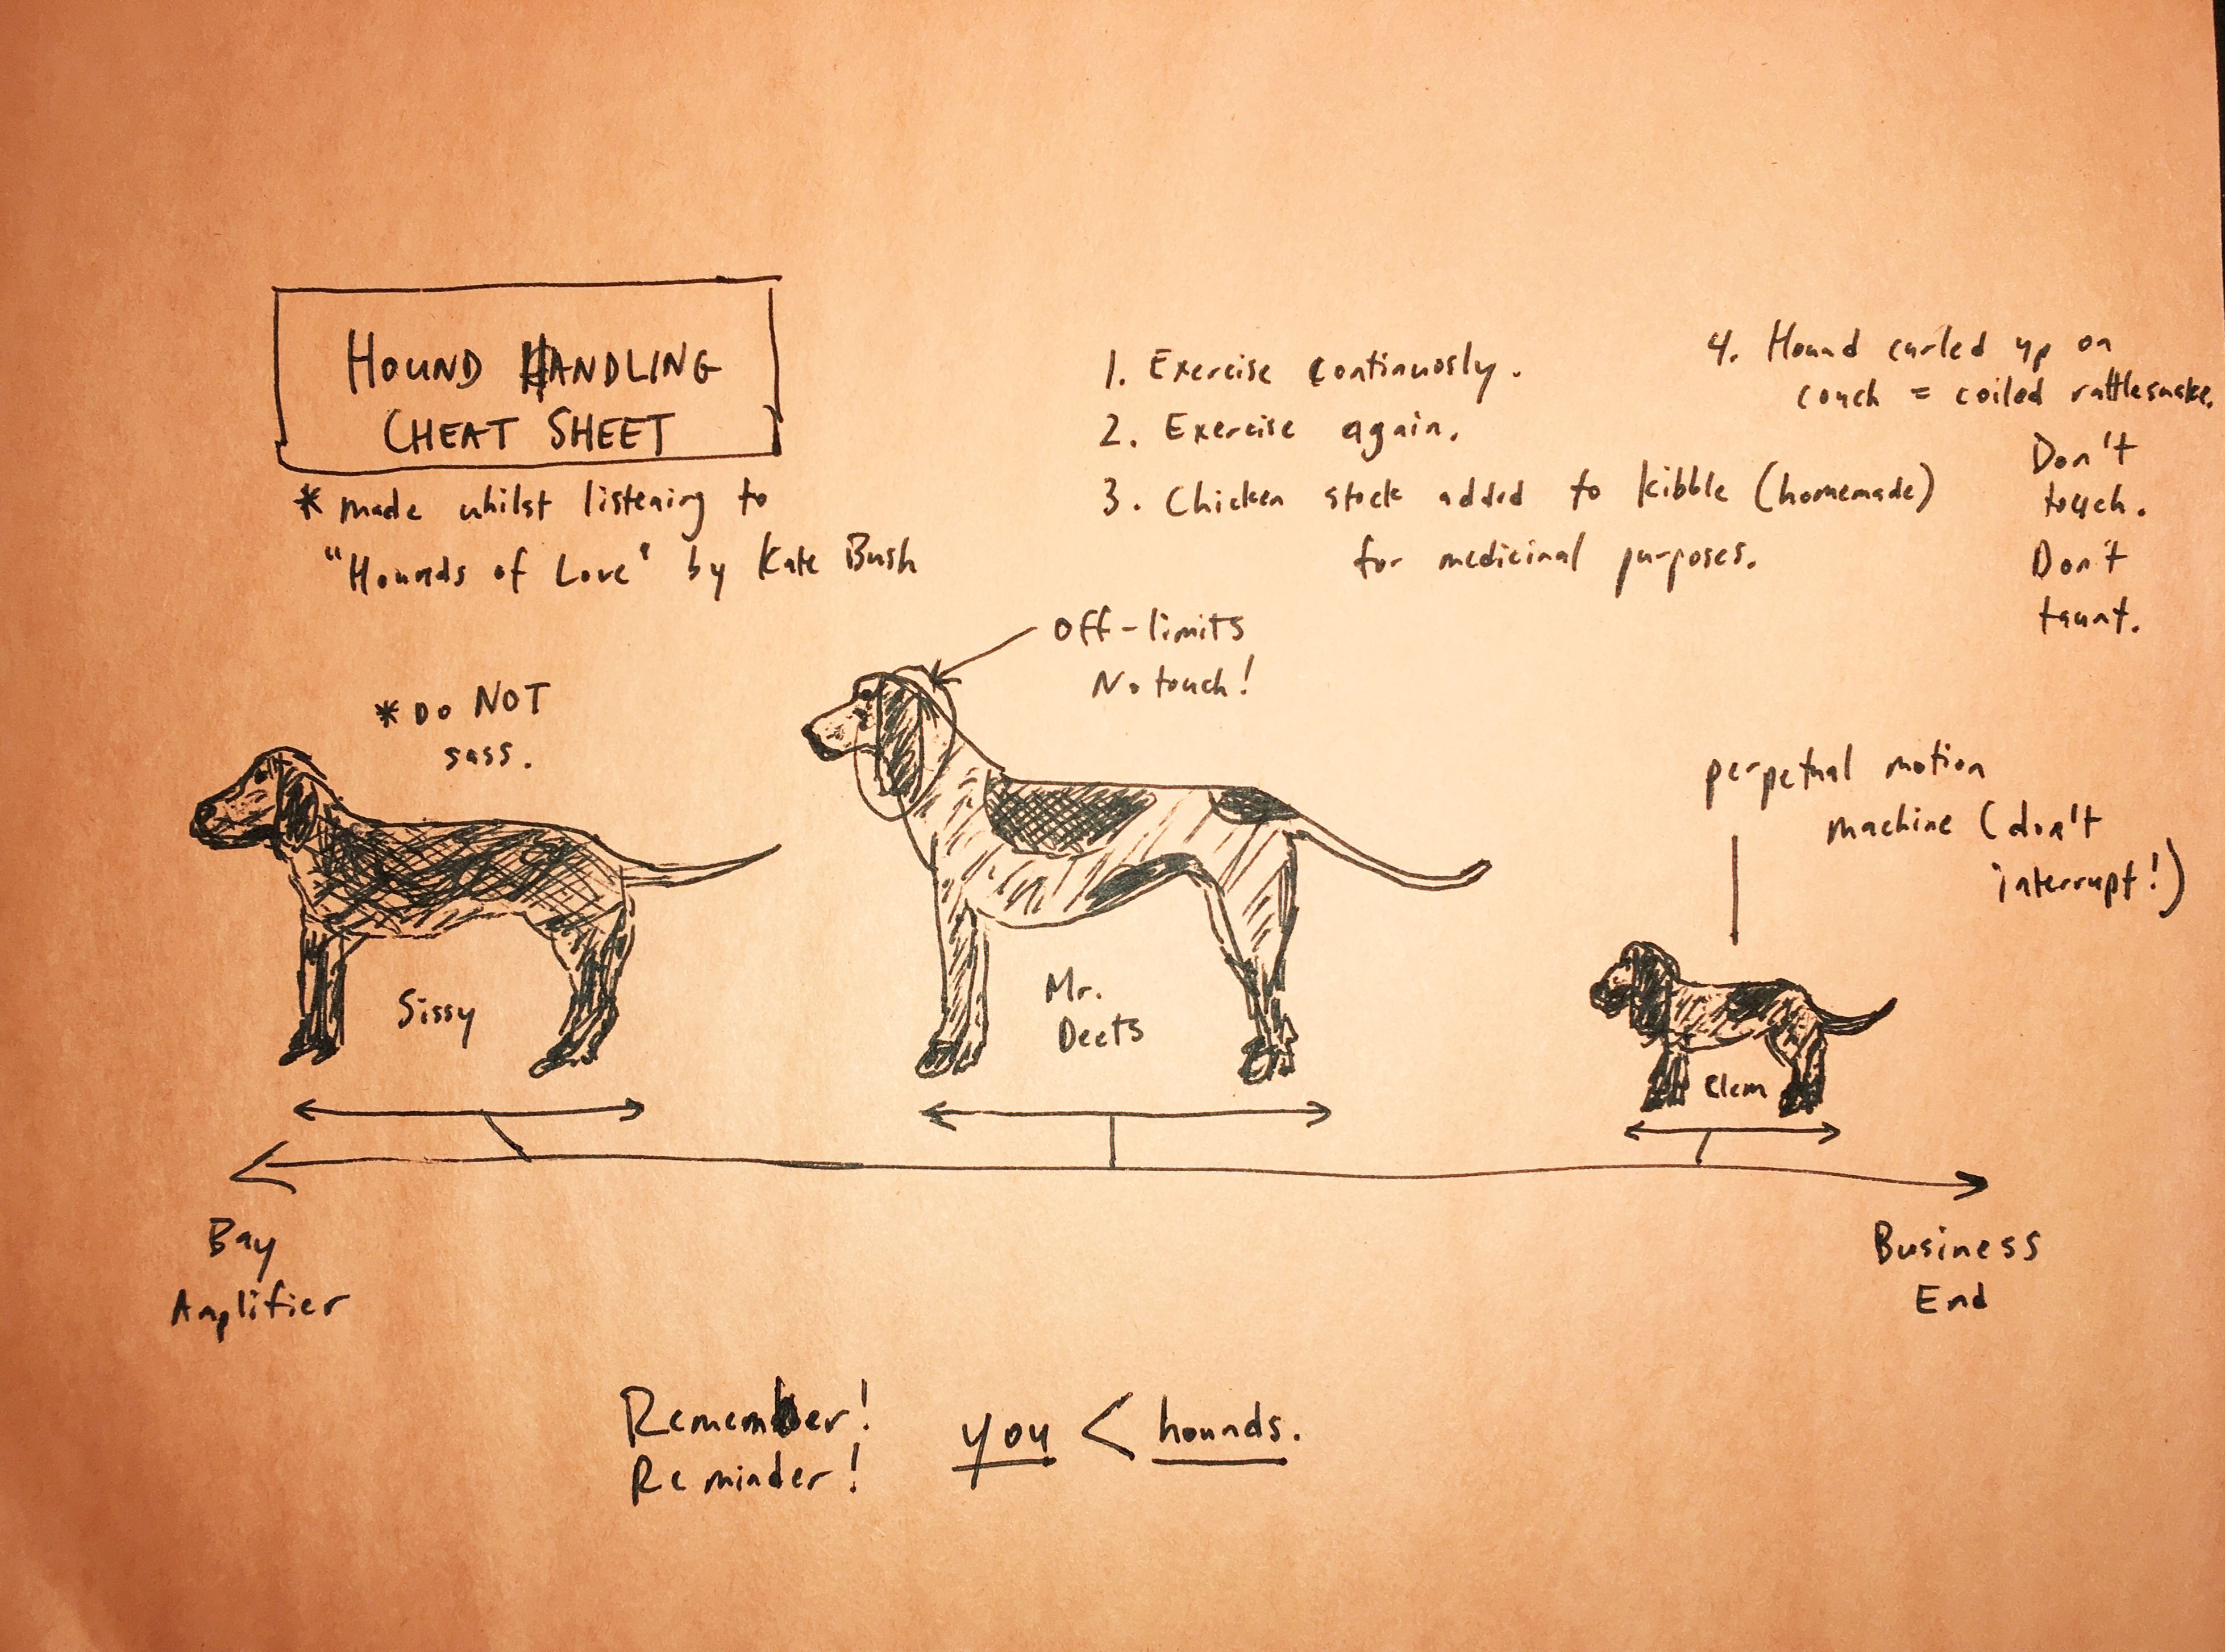 HOUND HANDLING
CHEAT SHEET
* made whilst listening to
"Hounds of Love" by Kate Bush
1. Exercise continuosly.
2. Exercise again.
3. Chicken stock added to kibble (homemade)
for medicinal purposes.
4. Hound curled up on
couch = coiled rattlesnake.
Don't
touch.
Don't
taunt.
* DO NOT
sass.
off-limits
No touch!
perpetual motion
machine (don't
interrupt!)
Sissy
Mr.
Deets
Clem
Bay
Amplifier
Business
End
Remember!
Reminder!
you < hounds.